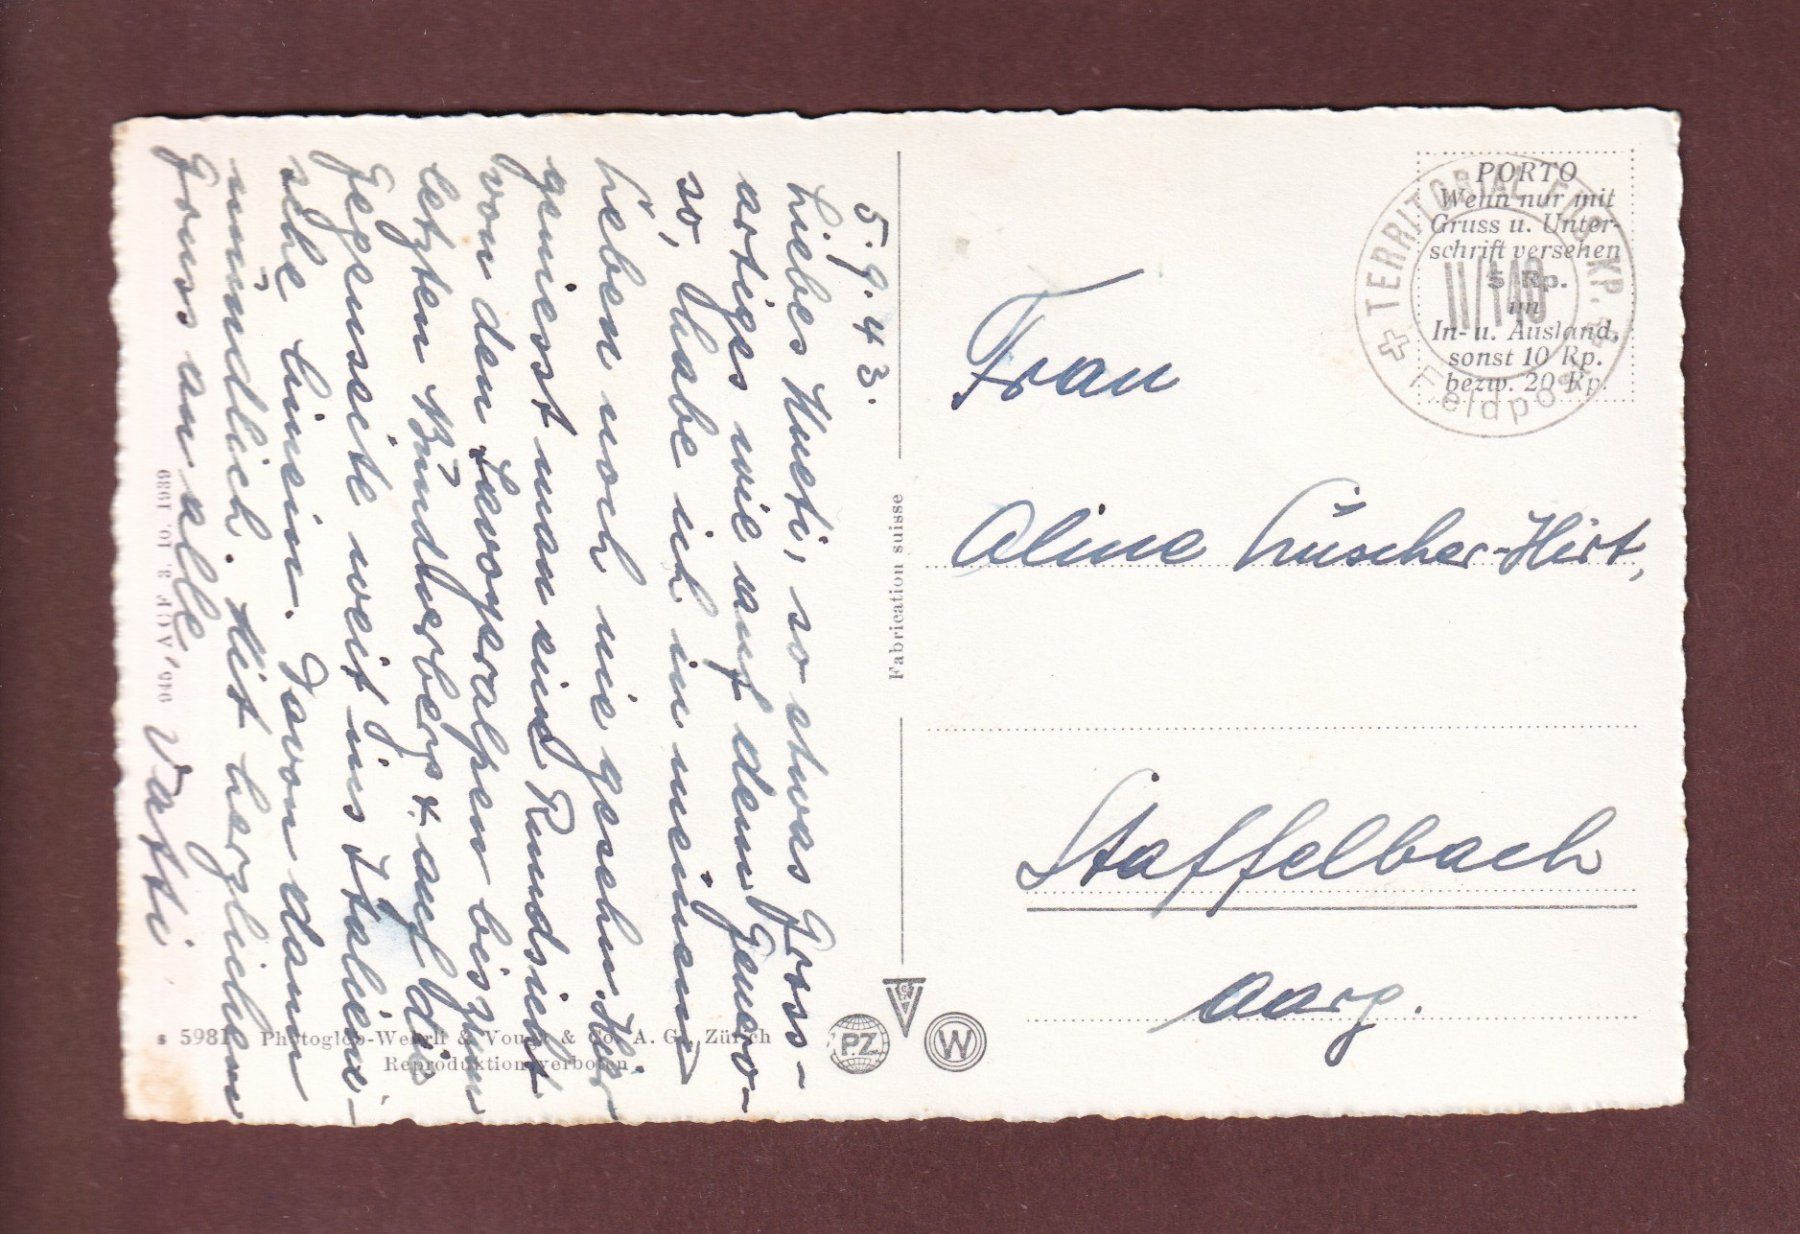 5.9.43.
Liebes Mueti, so etwas Gross-
artiges wie auf dem Genero-
so, habe ich in meinem
Leben noch nie gesehn. Hier
geniesst man eine Rundsicht
von den Savoyeralpen bis zum
letzten Bündnerberg & auf die
Gegenseite weit ins Italieni-
sche hinein. Davon dann
mündlich. Mit herzlichem
Gruss an alle
Vatti
Frau
Aline Lüscher-Hirt,
Staffelbach
Aarg.
PORTO
Wenn nur mit
Gruss u. Unter-
schrift versehen
5 Rp.
im
In- u. Ausland,
sonst 10 Rp.
bezw. 20 Rp.
TERRITORIAL KP.
II/140
Feldpost
Fabrication suisse
3. 10. 1939
5981 Photoglob-Wehrli & Vouga & Co. A. G., Zürich
Reproduktion verboten
PZ
W